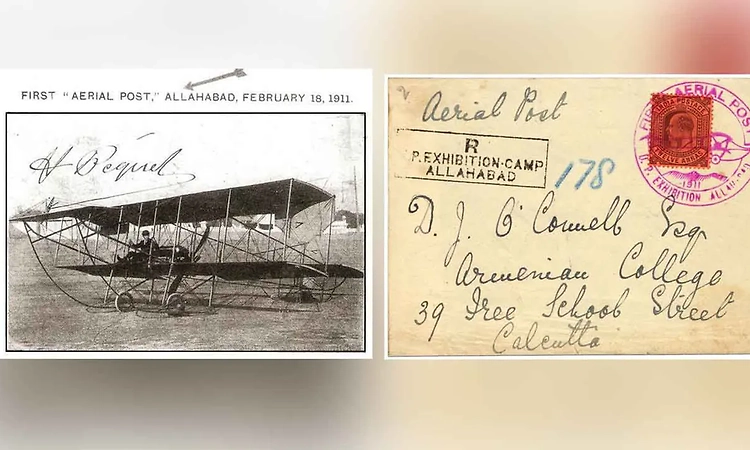 FIRST "AERIAL POST," ALLAHABAD, FEBRUARY 18, 1911.
H Pequet
Aerial Post
R
P. EXHIBITION-CAMP
ALLAHABAD
178
FIRST AERIAL POST
1911
U.P. EXHIBITION ALLAHABAD
INDIA POSTAGE
TWELVE ANNAS
D. J. O'Connell Esq
Armenian College
39 Free School Street
Calcutta